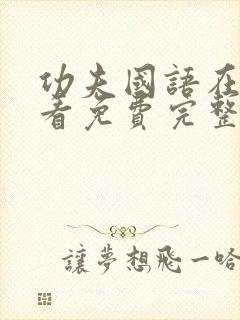 功夫國語在
看免費完整
讓夢想飛一哈